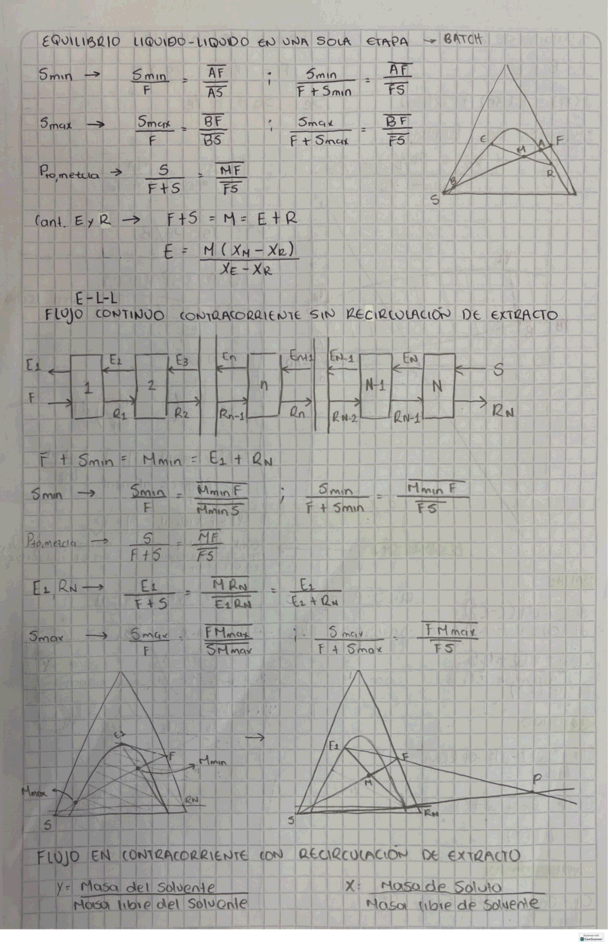 EQUILIBRIO LIQUIDO-LIQUIDO EN UNA SOLA ETAPA → BATCH
Smin → Smin/F = AF/AS ; Smin/F + Smin = AF/FS
Smax → Smax/F = BF/BS ; Smax/F + Smax = BF/FS
S/F+S = MF/FS
Cant. E y R → F+S = M = E + R
E = M(XM - XR)/XE - XR
E A F
M
B R
S
E-L-L
FLUJO CONTINUO CONTRACORRIENTE SIN RECIRCULACIÓN DE EXTRACTO
E1 E2 E3 En En+1 EN-1 EN S
F 1 2 n N-1 N
R1 R2 Rn-1 Rn RN-2 RN-1 RN
F + Smin = Mmin = E1 + RN
Smin → Smin/F = Mmin F/Mmin S ; Smin/F + Smin = Mmin F/FS
S/F+S = MF/FS
E1, RN → E1/F+S = M RN/E1 RN = E1/E1 + RN
Smax → Smax/F = F Mmax/S Mmax ; Smax/F + Smax = F Mmax/FS
F
Mmin
Mmax
RN
S
→
E1 F
M
P
S
RN
FLUJO EN CONTRACORRIENTE CON RECIRCULACIÓN DE EXTRACTO
Y = Masa del Solvente/Masa libre del Solvente
X: Masa de Soluto/Masa libre de Solvente